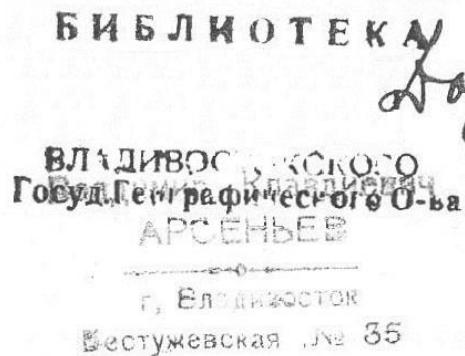 БИБЛИОТЕКА
ВЛАДИВОСТОКСКОГО
Госуд. Географического О-ва
Владимир Клавдиевич
АРСЕНЬЕВ
г. Владивосток
Бестужевская № 35